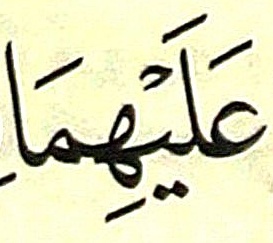 عَلَيْهِمَا